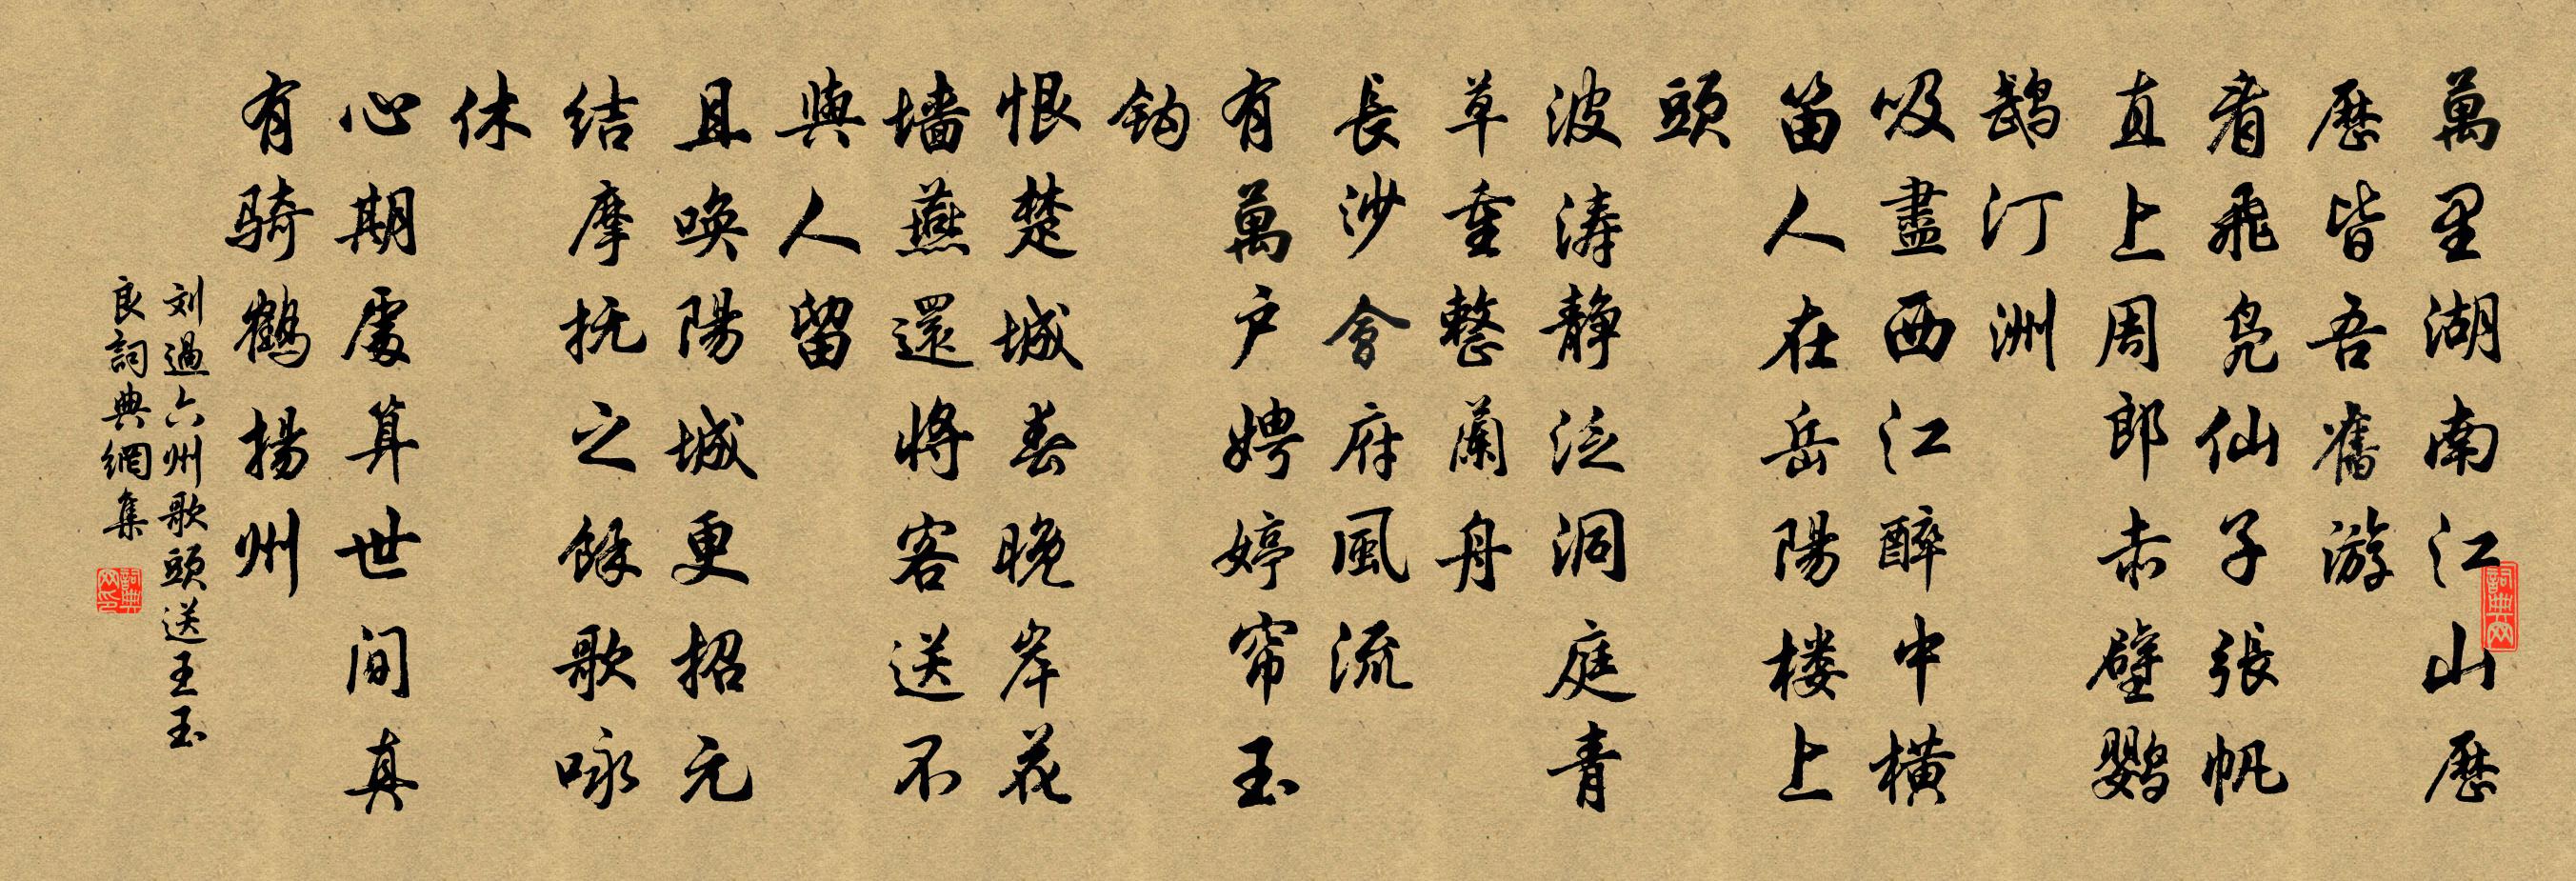 萬里湖南江山歷
歷皆吾舊游
看飛鳧仙子張帆
直上周郎赤壁鸚
鵡汀洲
吸盡西江醉中橫
笛人在岳陽楼上
頭
波涛静泛洞庭青
草重整蘭舟
長沙會府風流
有萬户娉婷帘玉
鈎
恨楚城春晚岸花
墙燕還將客送不
與人留
且唤陽城更招元
结摩抚之餘歌咏
休
心期處算世间真
有骑鹤揚州
刘過六州歌頭送王玉
良詞典網集
詞典网
詞典网印